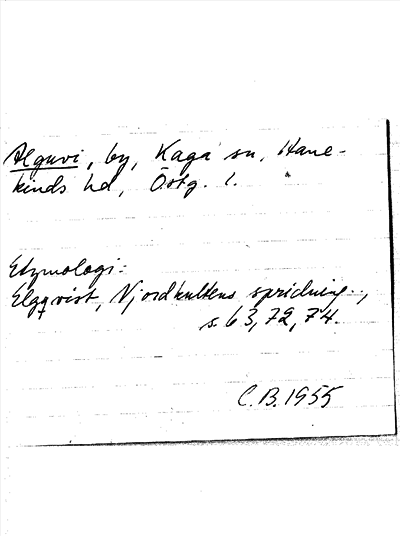 Alguvi, by, Kaga sn, Hane-
kinds hd, Östg. l.
Etymologi:
Elgqvist, Njordkultens spridning.,
s. 63, 72, 74.
C.B. 1955